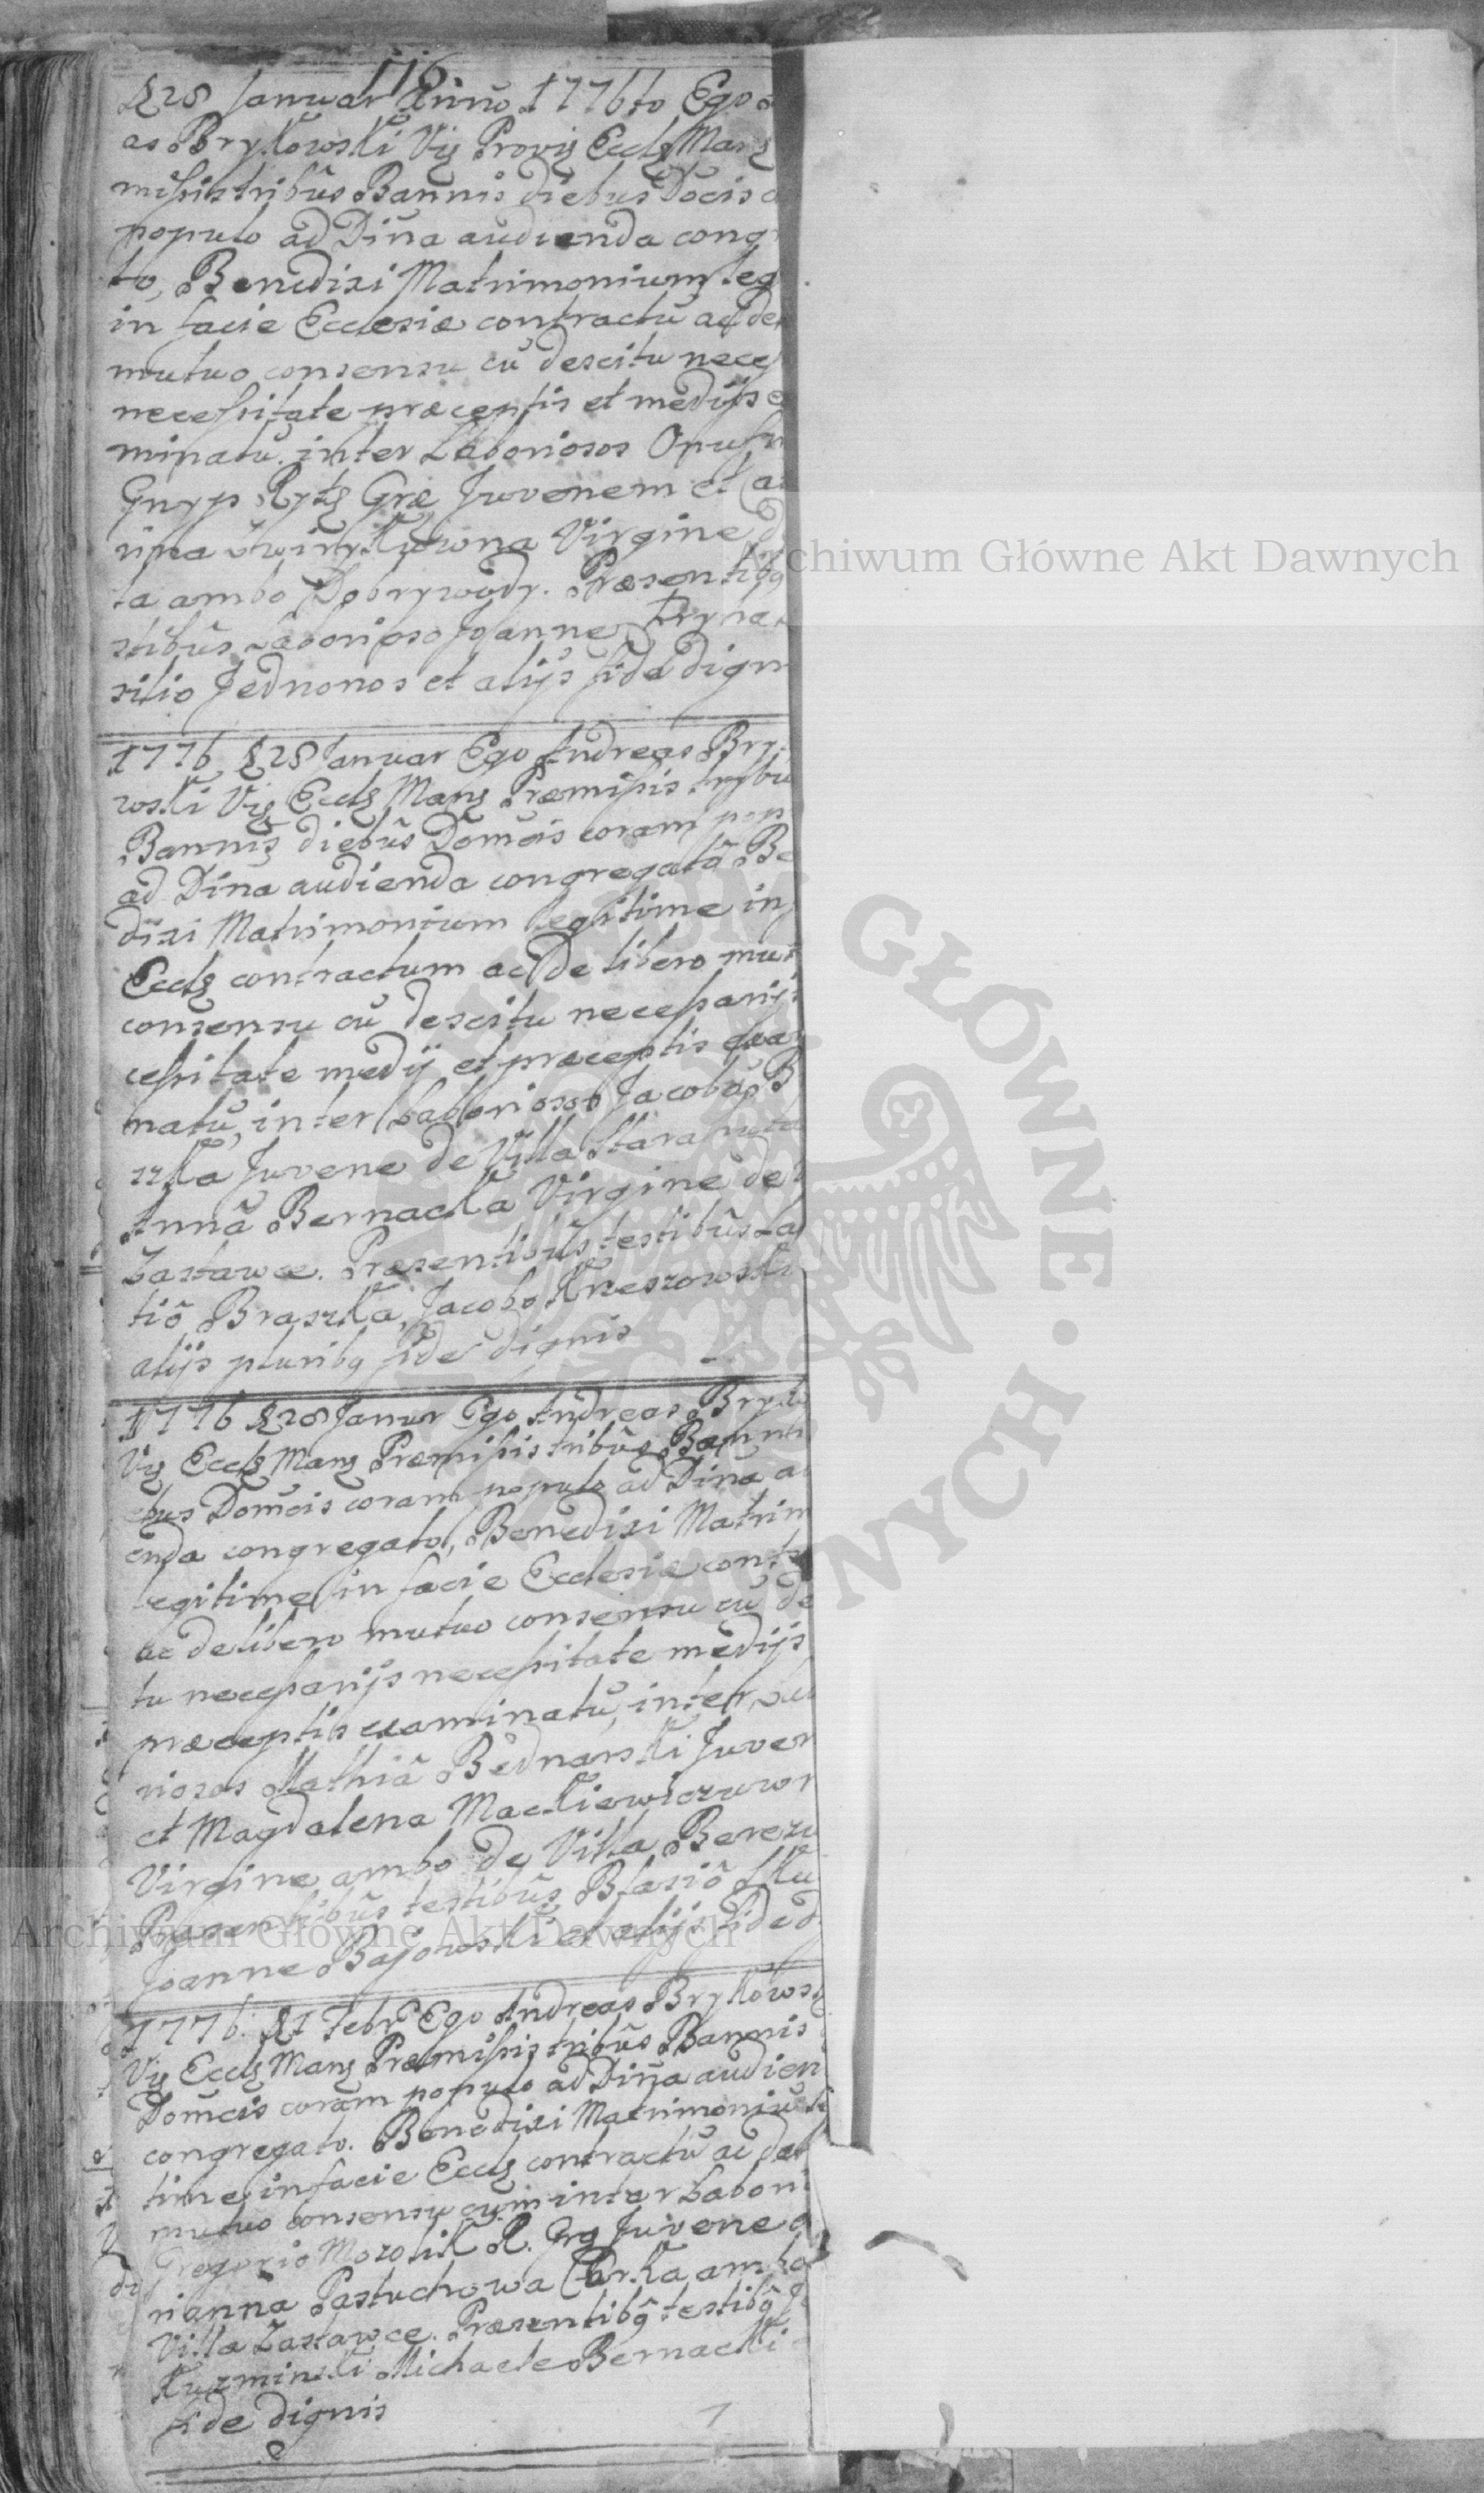 116.
28 Januar Anno 1776to Ego
as Brykowski Vig Provig Eccly Mang
missis tribûs Bannis diebus Docis
populo ad Dina audienda cong
to, Benedixi Matrimonium leg
in facie Ecclesiæ contractu ac de
mutuo consensu cũ descitu nece
necessitate præceptis et medijs e
minatũ inter Laboriosos Onufr
Gnyp Rytg Græ Juvenem et Ca
rina Virgine
ta ambo Dobrywody. Præsentibq
stibûs Laborioso Joanne Hryna
silio Jednonos et alijs fide dign
1776 28 Januar Ego Andreas Bry
woski Vig Eccly Mang Præmissis trybu
Bannis diebûs Domcis coram pop
ad Dina audienda congregatô Be
dixi Matrimonium legitime in
Eccly contractum ac de libero mut
consensu cũ descitu necessarijs
cessitate medij et præceptis exa
natũ, inter Laboriosos Jacobũ B
szka Juvene de Villa Stara
Annã Bernacka Virgine de
Zastawce. Præsentibûs testibûs La
tiô Braszka, Jacobo Kreszowski
alijs pluribq fide dignis
1776 28 Januar Ego Andreas Bryko
Vig Eccly Mang Præmissis tribûs Banni
ebus Domcis coram populo ad Dina a
enda congregato, Benedixi Matrim
legitime in facie Ecclesiæ contr
ac de libero mutuo consensu cũ de
tu necessarijs necessitate medijs
præceptis examinatũ, inter Labo
riosos Mathiã Bednarski Juven
et Magdalena Mackiewiczuwn
Virgine ambo de Villa Berezu
Præsentibûs testibûs Blasiô Sku
Joanne Bajowski et alijs fide d
1776. 1 Febr Ego Andreas Brykows
Vig Eccly Mang Præmissis tribûs Bannis
Domcis coram populo ad Dina audien
congregato. Benedixi Matrimoniũ le
time in facie Eccly contractũ ac de li
mutuo consensu cum inter Labori
Gregorio Mozolik R. Grg Juvene
rianna Pastuchowa Corka ambo
Villa Zastawce. Præsentibq testibq J
Kuzminski Michaele Bernacki
fide dignis
Archiwum Główne Akt Dawnych
Archiwum Główne Akt Dawnych
ARCHIWUM GŁÓWNE AKT DAWNYCH